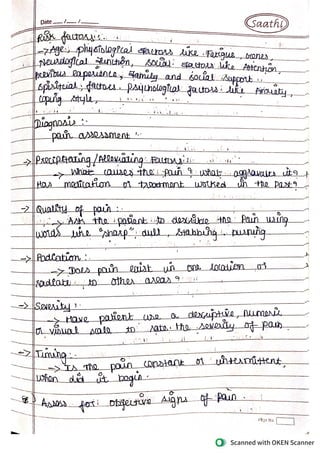 Date __/__/__ Saathi
Risk factors :-
→ Age, physiological factors like Fatigue, Genes,
Neurological function, Social factors like Attention,
previous experience, family and social support.
Spiritual factors. Psychological factors like Anxiety,
coping style,
Diagnosis :-
pain assessment :-
→ Precipitating / Alleviating Factors :
→ What causes the pain? what aggravates it?
Has medication or treatment worked in the past?
→ Quality of pain :
→ Ask the patient to describe the Pain using
words like "sharp", dull, stabbing, burning
→ Radiation :
→ Does pain exist in one location or
radiate to other areas?
→ Severity :
→ Have patient use a descriptive, numeric
or visual scale to rate the severity of pain.
→ Timing :
→ Is the pain constant or intermittent,
when did it begin.
Assess for objective signs of pain.
Page No.
Scanned with OKEN Scanner